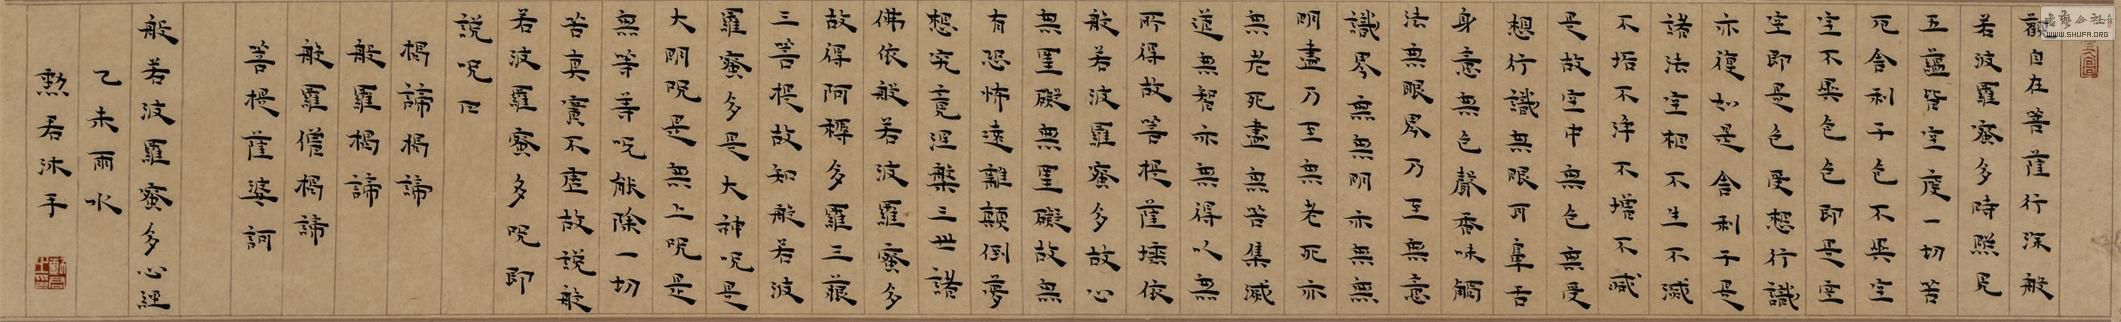 觀自在菩薩行深般
若波羅蜜多時照見
五蘊皆空度一切苦
厄舍利子色不異空
空不異色色即是空
空即是色受想行識
亦復如是舍利子是
諸法空相不生不滅
不垢不淨不增不減
是故空中無色無受
想行識無眼耳鼻舌
身意無色聲香味觸
法無眼界乃至無意
識界無無明亦無無
明盡乃至無老死亦
無老死盡無苦集滅
道無智亦無得以無
所得故菩提薩埵依
般若波羅蜜多故心
無罣礙無罣礙故無
有恐怖遠離顛倒夢
想究竟涅槃三世諸
佛依般若波羅蜜多
故得阿耨多羅三藐
三菩提故知般若波
羅蜜多是大神呪是
大明呪是無上呪是
無等等呪能除一切
苦真實不虛故說般
若波羅蜜多呪即
說呪曰
揭諦揭諦
般羅揭諦
般羅僧揭諦
菩提薩婆訶
般若波羅蜜多心經
乙未雨水
勲君沐手
WWW.SHUFA.ORG